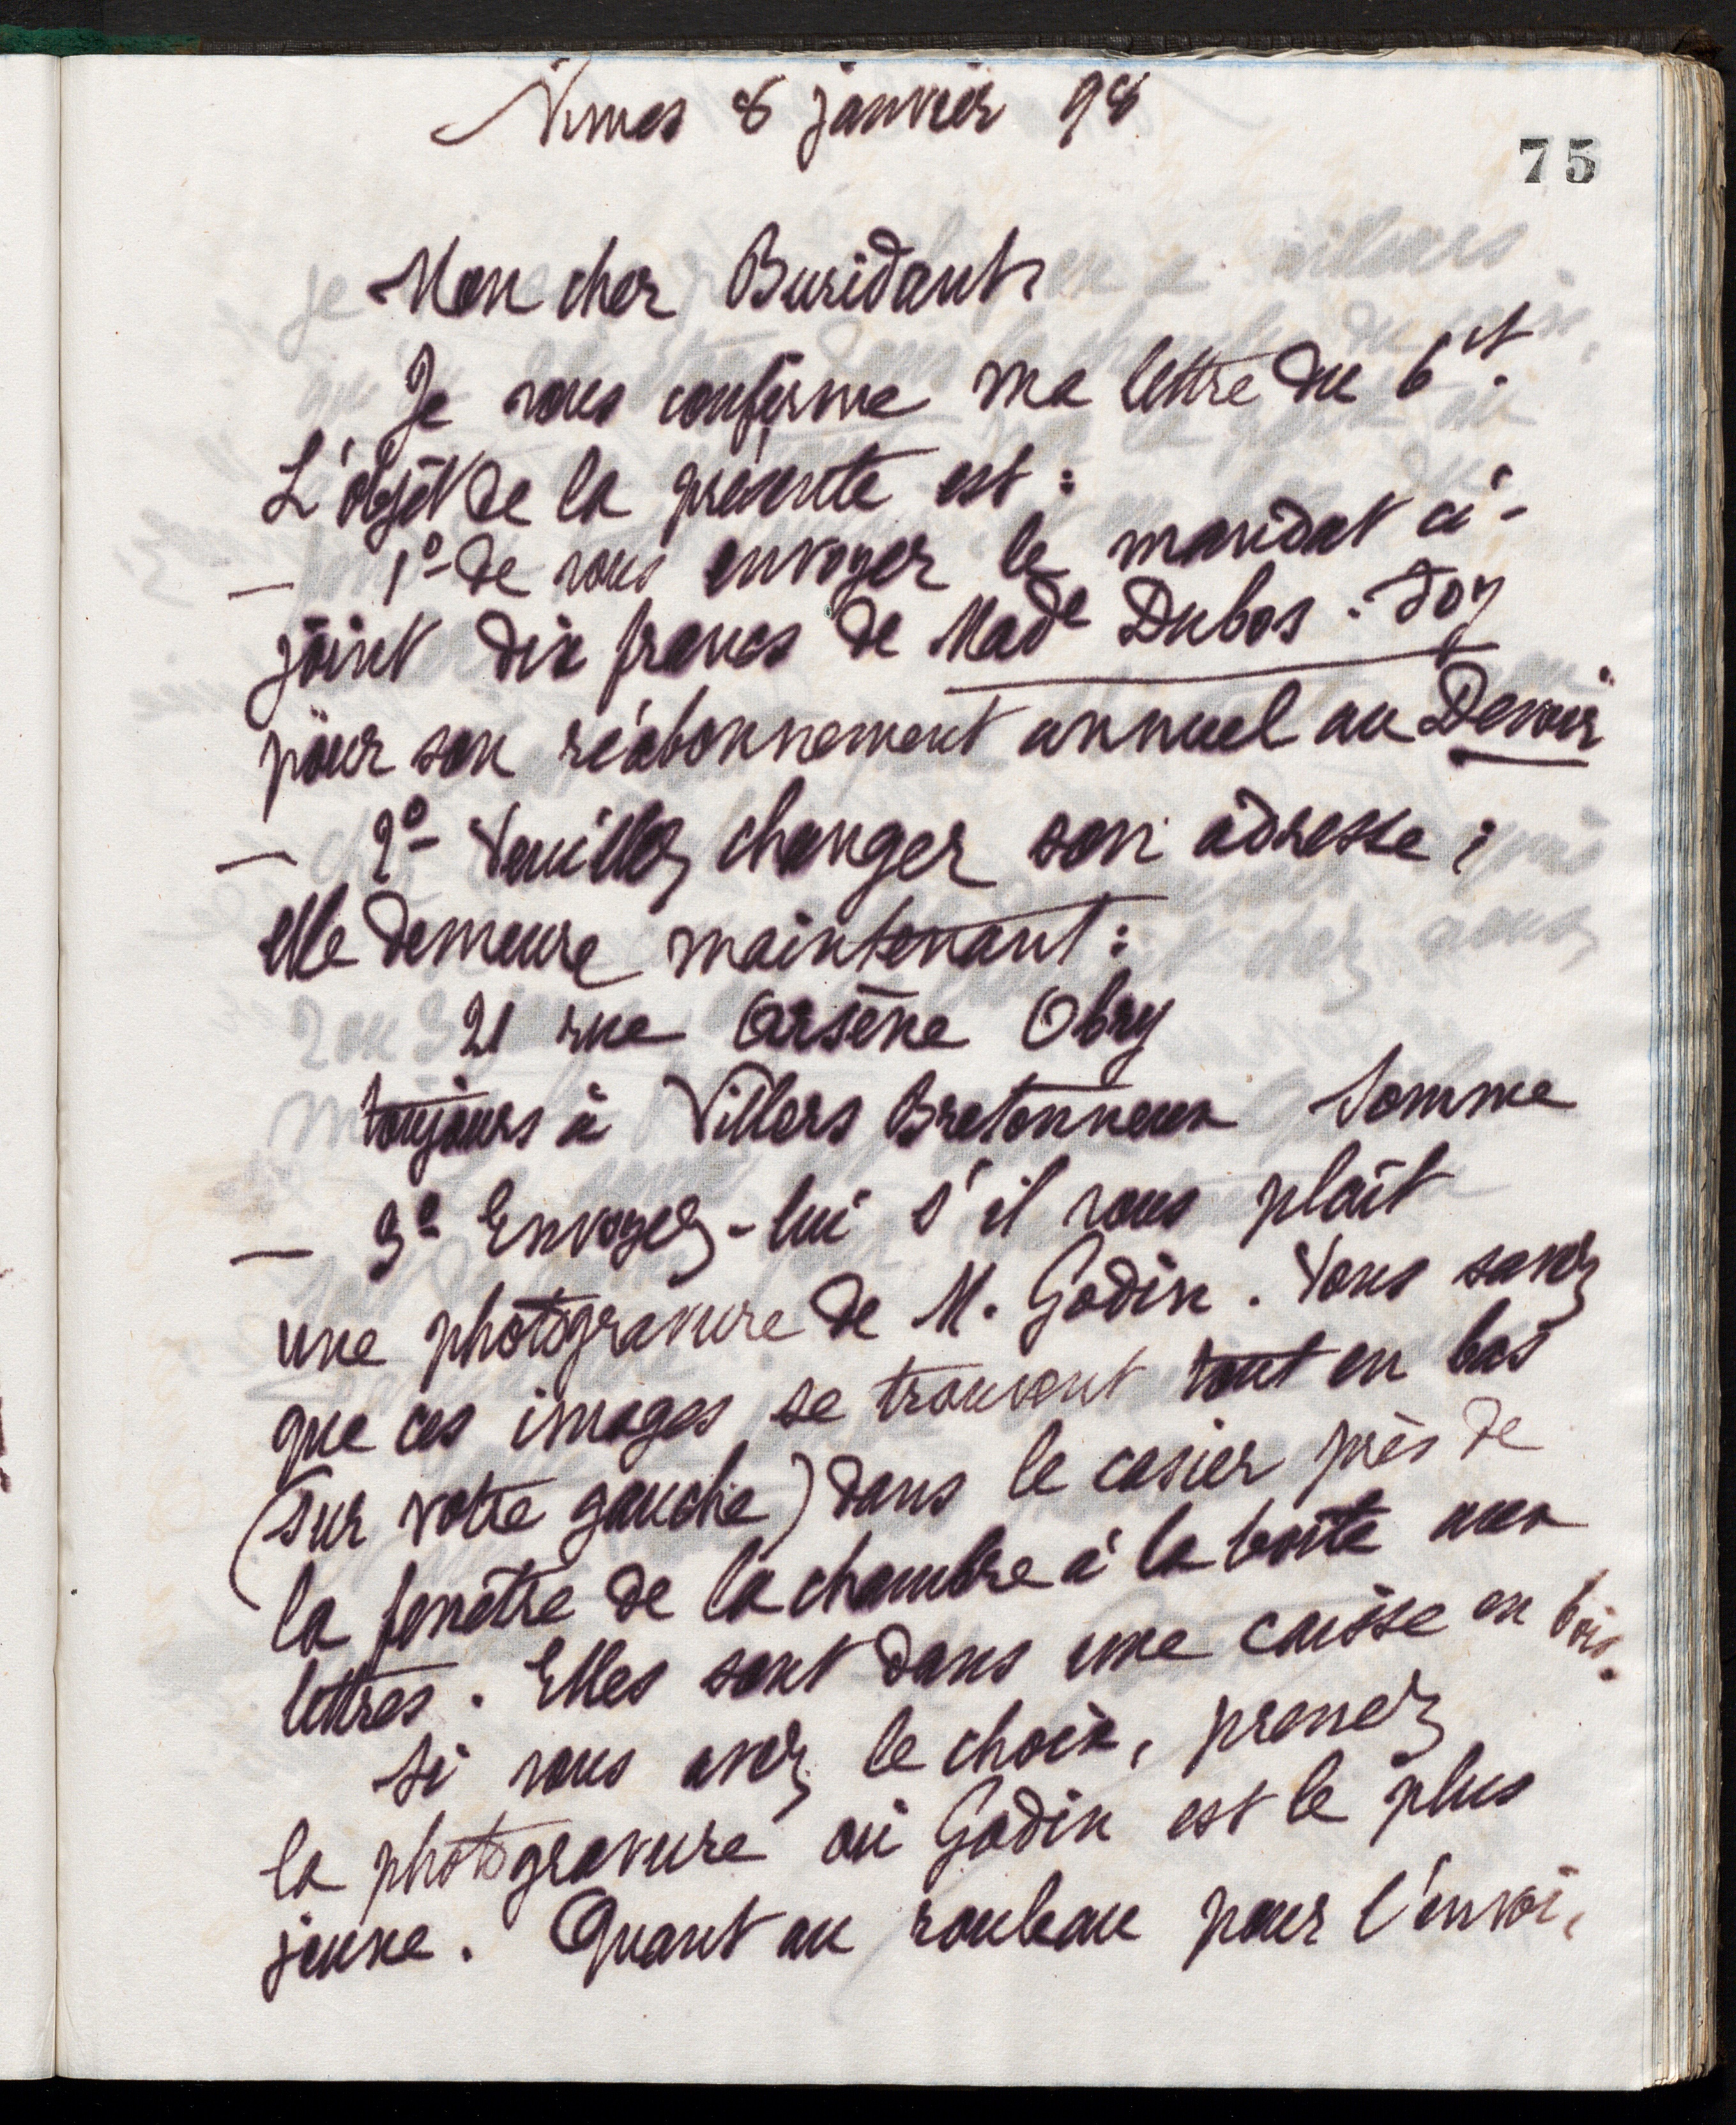 Nimes 8 janvier 98
75
Mon cher Buridant,
Je vous confirme ma lettre du 6 ct.
L'objet de la présente est :
— 1º- de vous envoyer le mandat ci-
joint dix francs de Made Dubos. Doy
pour son réabonnement annuel au Devoir
— 2º- Veuillez changer son adresse ;
elle demeure maintenant :
21 rue Arsène Obry
toujours à Villers Bretonneux Somme
— 3º Envoyez-lui s'il vous plaît
une photogravure de M. Godin. Vous savez
que ces images se trouvent tout en bas
(sur votre gauche) dans le casier près de
la fenêtre de la chambre à la boîte aux
lettres. Elles sont dans une caisse en bois.
Si vous avez le choix, prenez
la photogravure où Godin est le plus
jeune. Quant au rouleau pour l'envoi,